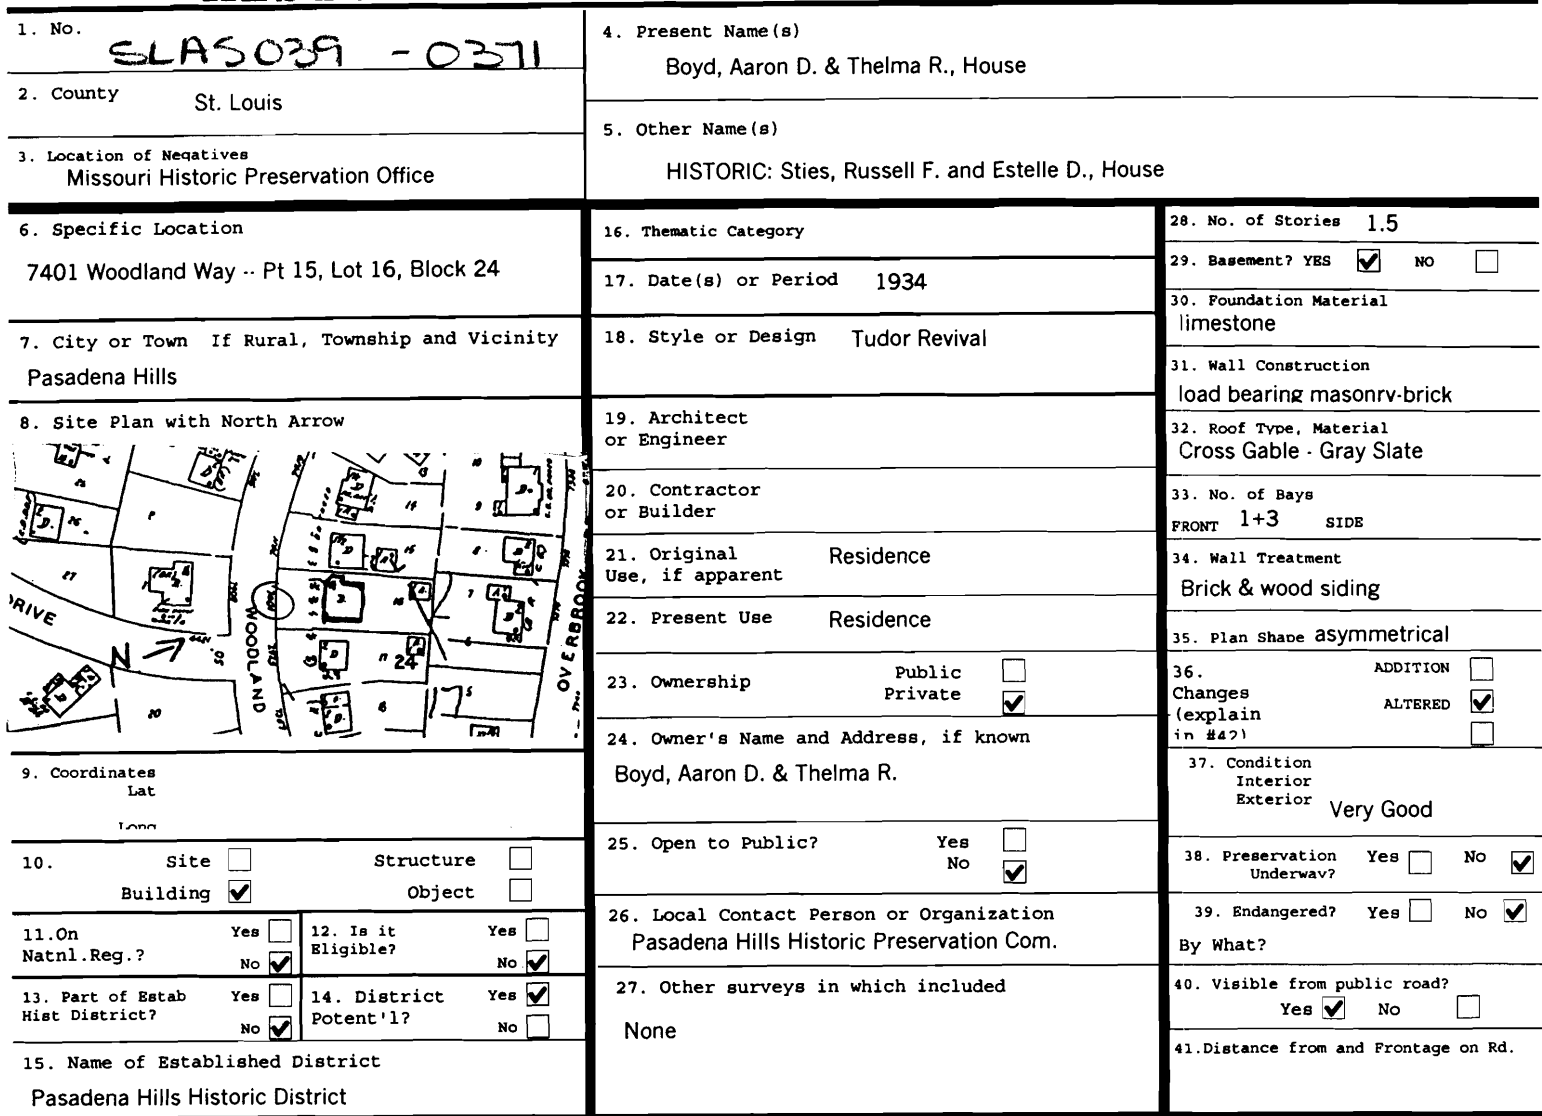 1. No.
SLAS039 - 0371
2. County
St. Louis
3. Location of Negatives
Missouri Historic Preservation Office
4. Present Name(s)
Boyd, Aaron D. & Thelma R., House
5. Other Name(s)
HISTORIC: Sties, Russell F. and Estelle D., House
6. Specific Location
7401 Woodland Way -- Pt 15, Lot 16, Block 24
7. City or Town If Rural, Township and Vicinity
Pasadena Hills
8. Site Plan with North Arrow
DRIVE
N
WOODLAND
OVERBROOK
24
9. Coordinates
Lat
Long
10. Site Structure
Building Object
11.On Yes
Natnl.Reg.? No
12. Is it Yes
Eligible? No
13. Part of Estab Yes
Hist District? No
14. District Yes
Potent'l? No
15. Name of Established District
Pasadena Hills Historic District
16. Thematic Category
17. Date(s) or Period 1934
18. Style or Design Tudor Revival
19. Architect
or Engineer
20. Contractor
or Builder
21. Original Residence
Use, if apparent
22. Present Use Residence
23. Ownership Public
Private
24. Owner's Name and Address, if known
Boyd, Aaron D. & Thelma R.
25. Open to Public? Yes
No
26. Local Contact Person or Organization
Pasadena Hills Historic Preservation Com.
27. Other surveys in which included
None
28. No. of Stories 1.5
29. Basement? YES NO
30. Foundation Material
limestone
31. Wall Construction
load bearing masonry-brick
32. Roof Type, Material
Cross Gable - Gray Slate
33. No. of Bays
FRONT 1+3 SIDE
34. Wall Treatment
Brick & wood siding
35. Plan Shape asymmetrical
36. ADDITION
Changes
(explain ALTERED
in #42)
37. Condition
Interior
Exterior Very Good
38. Preservation Yes No
Underway?
39. Endangered? Yes No
By What?
40. Visible from public road?
Yes No
41.Distance from and Frontage on Rd.